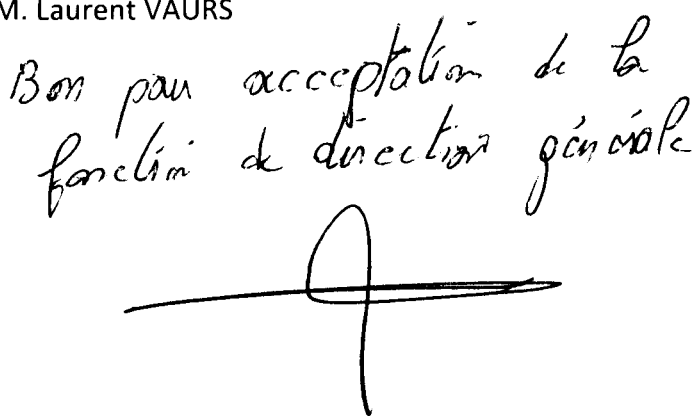 M. Laurent VAURS
Bon pour acceptation de la
fonction de direction générale